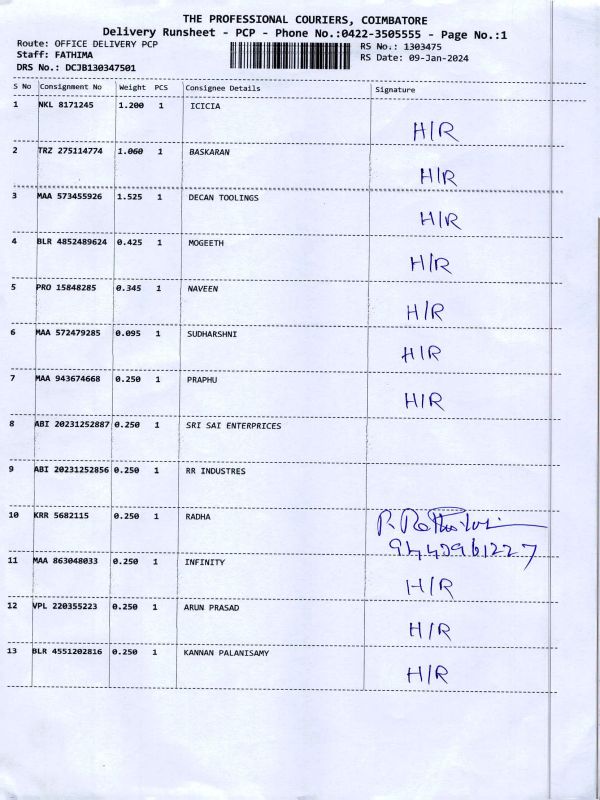 THE PROFESSIONAL COURIERS, COIMBATORE
Delivery Runsheet - PCP - Phone No.:0422-3505555 - Page No.:1
Route: OFFICE DELIVERY PCP RS No.: 1303475
Staff: FATHIMA RS Date: 09-Jan-2024
DRS No.: DCJB130347501
S No Consignment No Weight PCS Consignee Details Signature
1 NKL 8171245 1.200 1 ICICIA
H/R
2 TRZ 275114774 1.060 1 BASKARAN
H/R
3 MAA 573455926 1.525 1 DECAN TOOLINGS
H/R
4 BLR 4852489624 0.425 1 MOGEETH
H/R
5 PRO 15848285 0.345 1 NAVEEN
H/R
6 MAA 572479285 0.095 1 SUDHARSHNI
H/R
7 MAA 943674668 0.250 1 PRAPHU
H/R
8 ABI 20231252887 0.250 1 SRI SAI ENTERPRICES
9 ABI 20231252856 0.250 1 RR INDUSTRES
10 KRR 5682115 0.250 1 RADHA
11 MAA 863048033 0.250 1 INFINITY
H/R
12 VPL 220355223 0.250 1 ARUN PRASAD
H/R
13 BLR 4551202816 0.250 1 KANNAN PALANISAMY
H/R